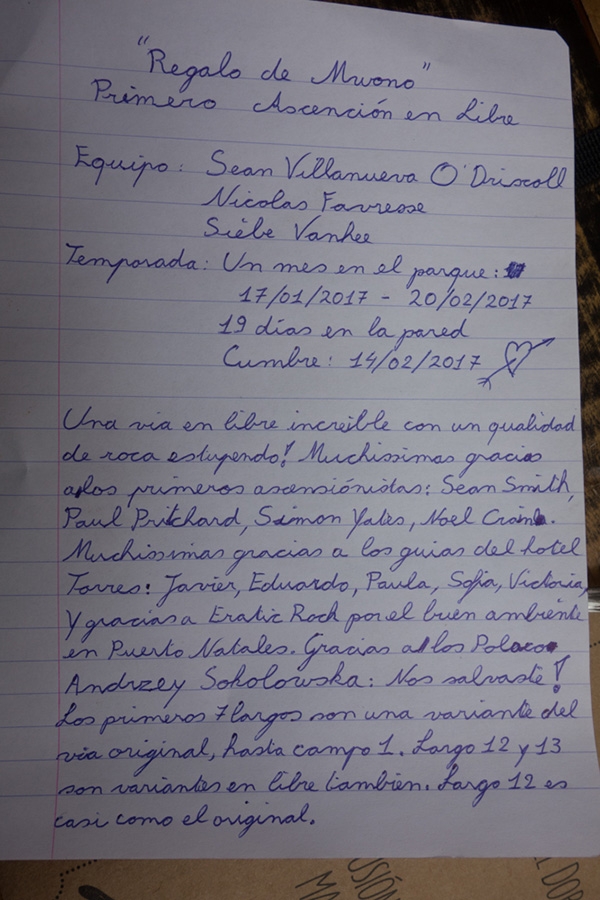 "Regalo de Mwono"
Primero Ascención en Libre
Equipo: Sean Villanueva O'Driscoll
Nicolas Favresse
Siebe Vanhee
Temporada: Un mes en el parque:
17/01/2017 - 20/02/2017
19 días en la pared
Cumbre: 14/02/2017
Una via en libre increible con un qualidad
de roca estupendo! Muchissimas gracias
a los primeros ascensiónistas: Sean Smith,
Paul Pritchard, Simon Yates, Noel
Muchissimas gracias a los guias del hotel
Torres: Javier, Eduardo, Paula, Sofia, Victoria,
Y gracias a Eratic Rock por el buen ambiente
en Puerto Natales. Gracias a los Polaco
Andrzey Sokolowska: Nos salvaste!
Los primeros 7 largos son una variante del
via original, hasta campo 1. Largo 12 y 13
son variantes en libre tambien. Largo 12 es
casi como el original.